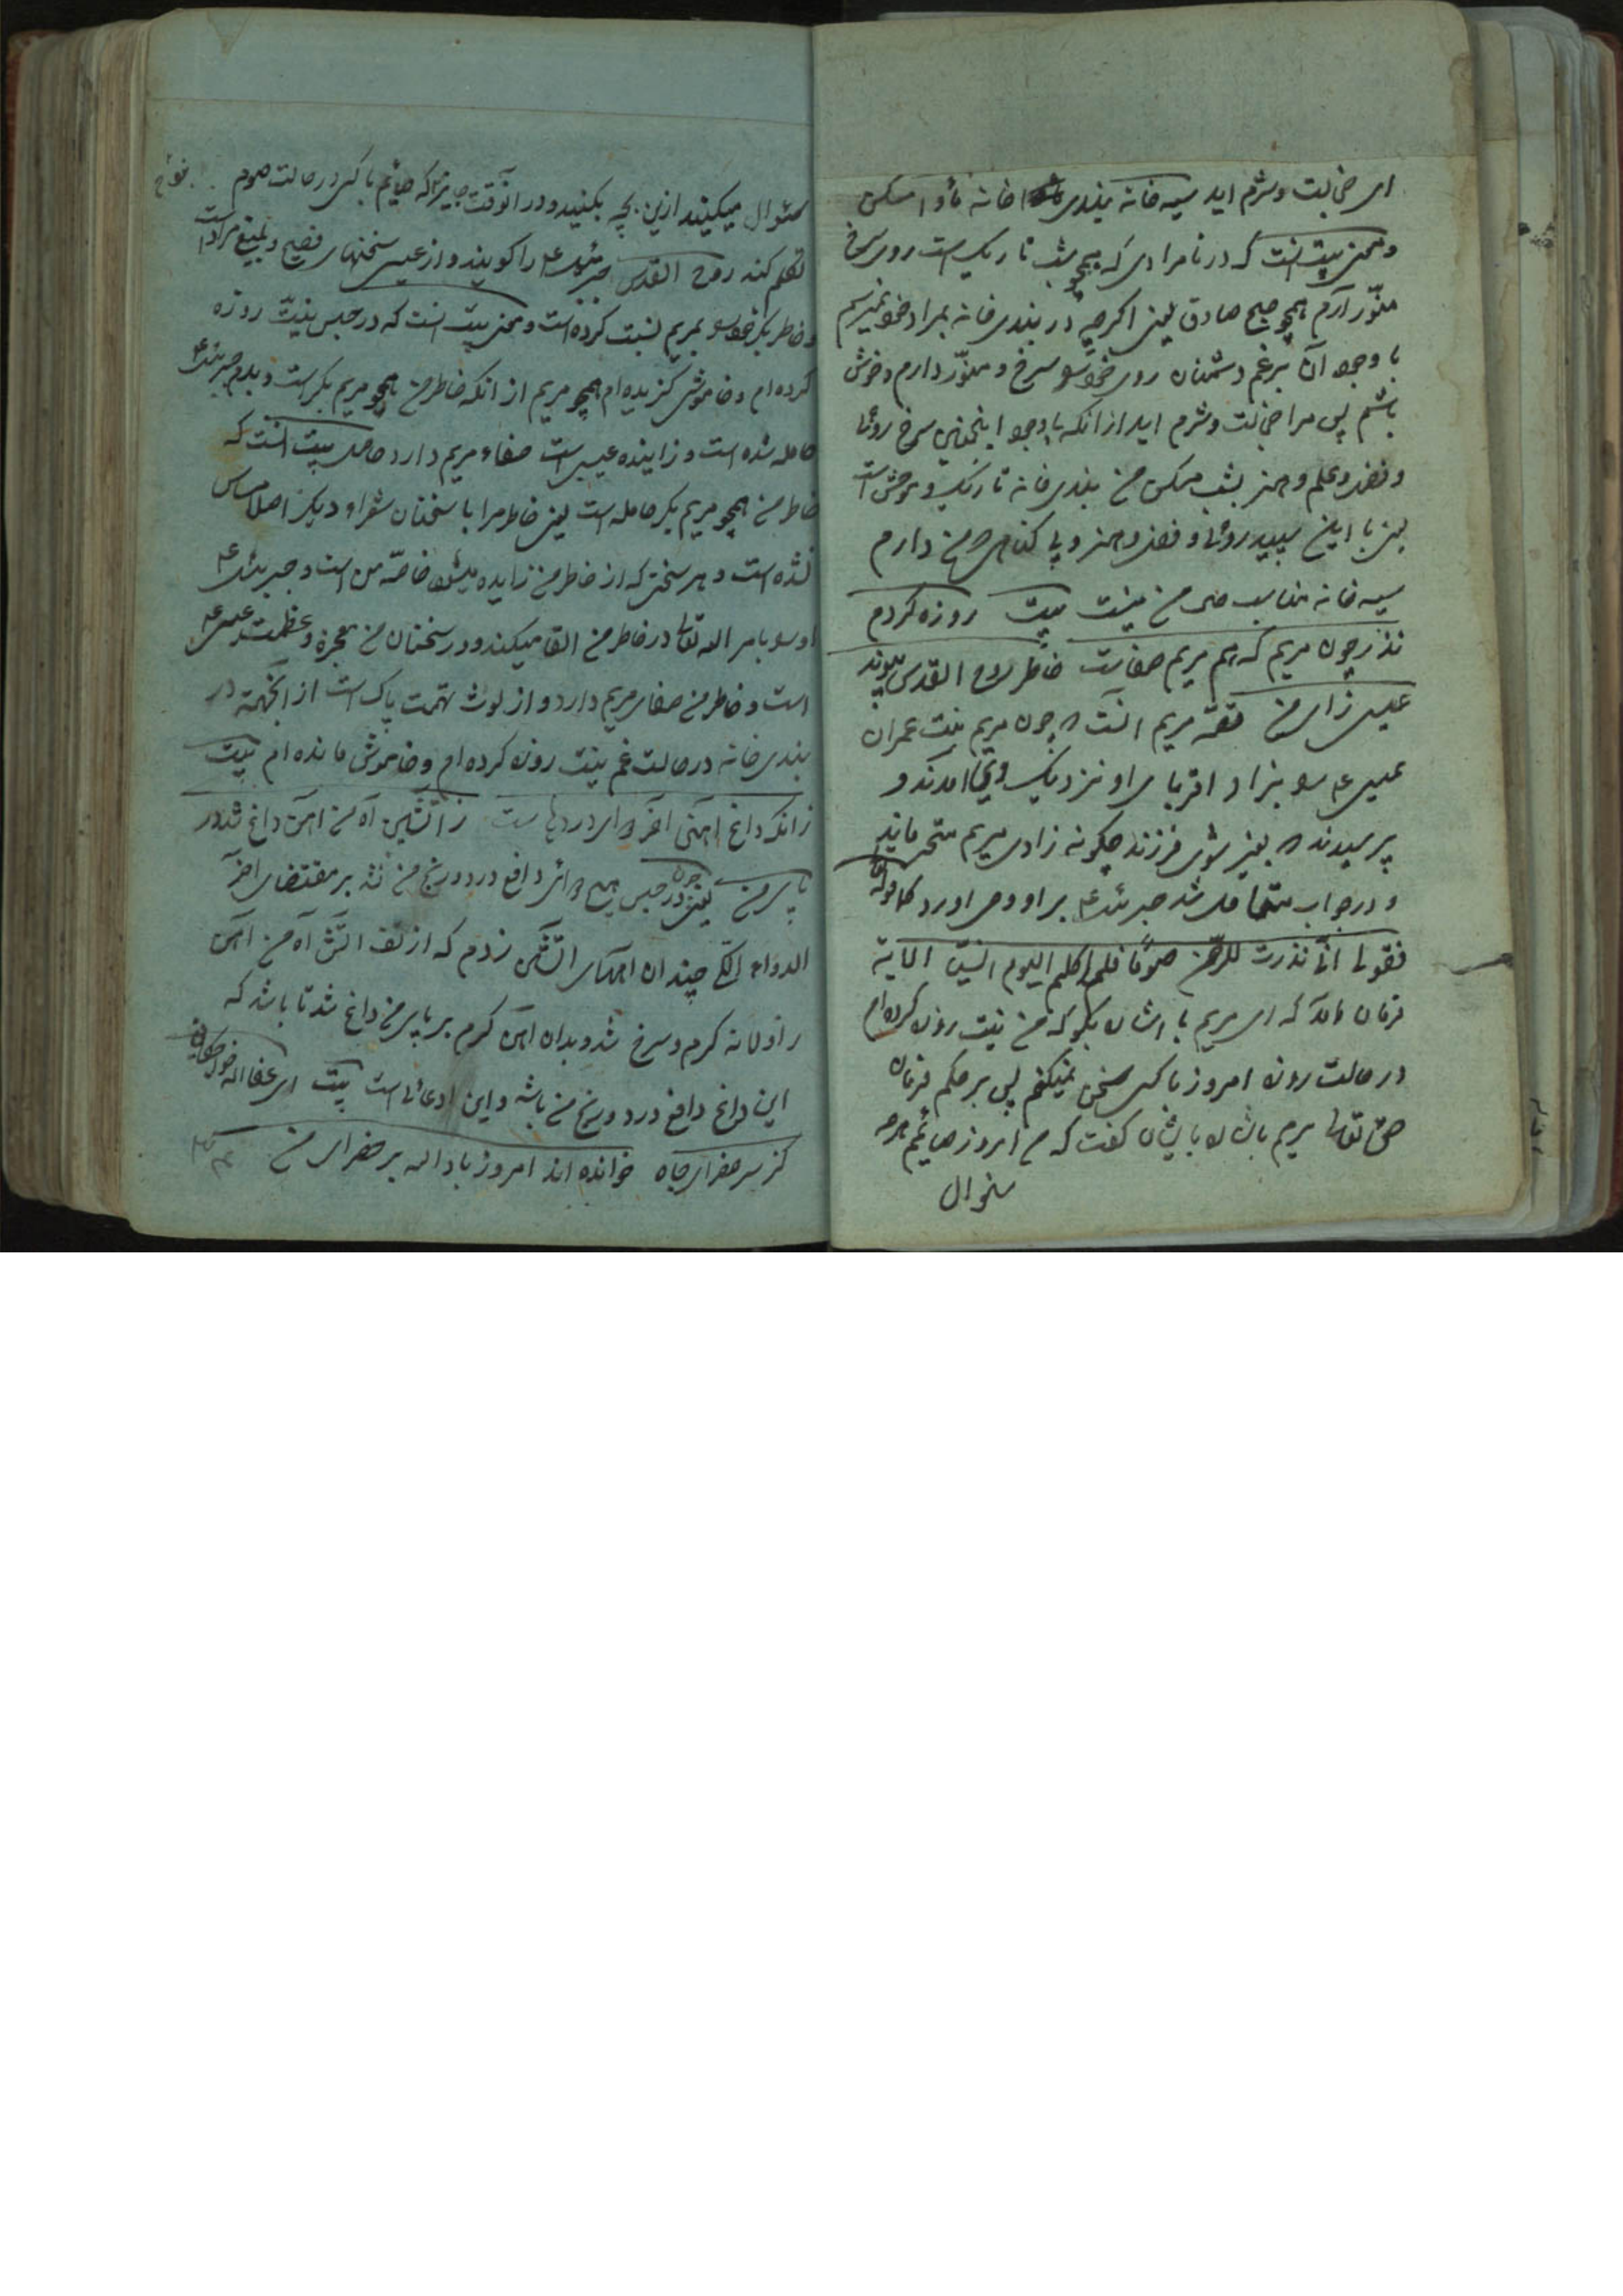 ای خجالت و شرم اید سیه خانه بندی خانه مأوا مسکن
و معنی بیت انست که در نامرادی که همچو شب تاریک است روی سرخ
منوّر آرم همچو صبح صادق یعنی اکرچه در بندی خانه بمراد خود نمیرسم
با وجود آن برغم دشمنان روی خود سرخ و منوّر دارم و خوش
باشم پس مرا خجالت و شرم اید از انکه باوجود اینچنین سرخ روئی
و فضل و علم و هنر بشب مسکن من بندی خانه تاریک و موحش است
یعنی با این سپید روئی و فضل و هنر و بی کناهی که من دارم
سیه خانه مناسب حال من نیست بیت روزه کردم
نذر چون مریم که هم مریم صفاست خاطر روح القدس پیوند
عیسی زای من قصّه مریم انست که چون مریم بنت عمران
عیسی را بزاد اقربای او نزدیک وی آمدند و
پرسیدند که بغیر شوی فرزند چکونه زادی مریم متحیر ماند
و در جواب شد جبرئیل بر او وحی اورد که قوله
فقولی انّی نذرت للرحمن صومًا فلن اکلم الیوم انسیّا الایة
فرمان آمد که ای مریم با ایشان بکو که من نیت روزه کرده ام
در حالت روزه امروز با کسی سخن نمیکنم پس بر حکم فرمان
حق تعالی مریم بایشان کفت که من امروز صائم هرچه
سئوال
سئوال میکنید ازین بچه بکنید و در آنوقت جایز بود که صائم با کسی در حالت صوم
تکلم کند روح القدس جبرئیل را کویند و از عیسی سخنهای فصیح و بلیغ مراد است
و خاطر بکر خود را بمریم نسبت کرده است و معنی بیت انست که در حبس بنیت روزه
کرده ام و خاموشی کزیده ام همچو مریم از انکه خاطر من همچو مریم بکر است و بدم جبرئیل
حامله شده است و زاینده عیسی است صفاء مریم دارد حاصل بیت انست که
خاطر من همچو مریم بکر حامله است یعنی خاطر مرا با سخنان شعراء دیکر اصلا مساس
نشده است و هر سخنی که از خاطر من زاییده میشود خاصّه من است و جبرئیل
او را بامر الله تعالی در خاطر من القا میکند و در سخنان من معجزه و عظمت عیسی
است و خاطر من صفای مریم دارد و از لوث تهمت پاک است از انجهة در
بندی خانه در حالت غم نیت روزه کرده ام و خاموش مانده ام بیت
زانکه داغ اهنین آخر دوای دردهاست ز آتشین آه من آهن داغ شد در
پای من یعنی چون در حبس هیچ دوائی دافع درد و رنج من نشد بر مقتضای آخر
الدواء الکی چندان آههای آتشین زدم که از تف اتش آه من آهن
زاولانه کرم و سرخ شد و بدان آهن کرم بر پای من داغ شد تا باشد که
این داغ دافع درد و رنج من باشد و این ادعائی است بیت ای عفا الله
کز سر صفرای جاه خوانده اند امروز باد اله بر خضرای من